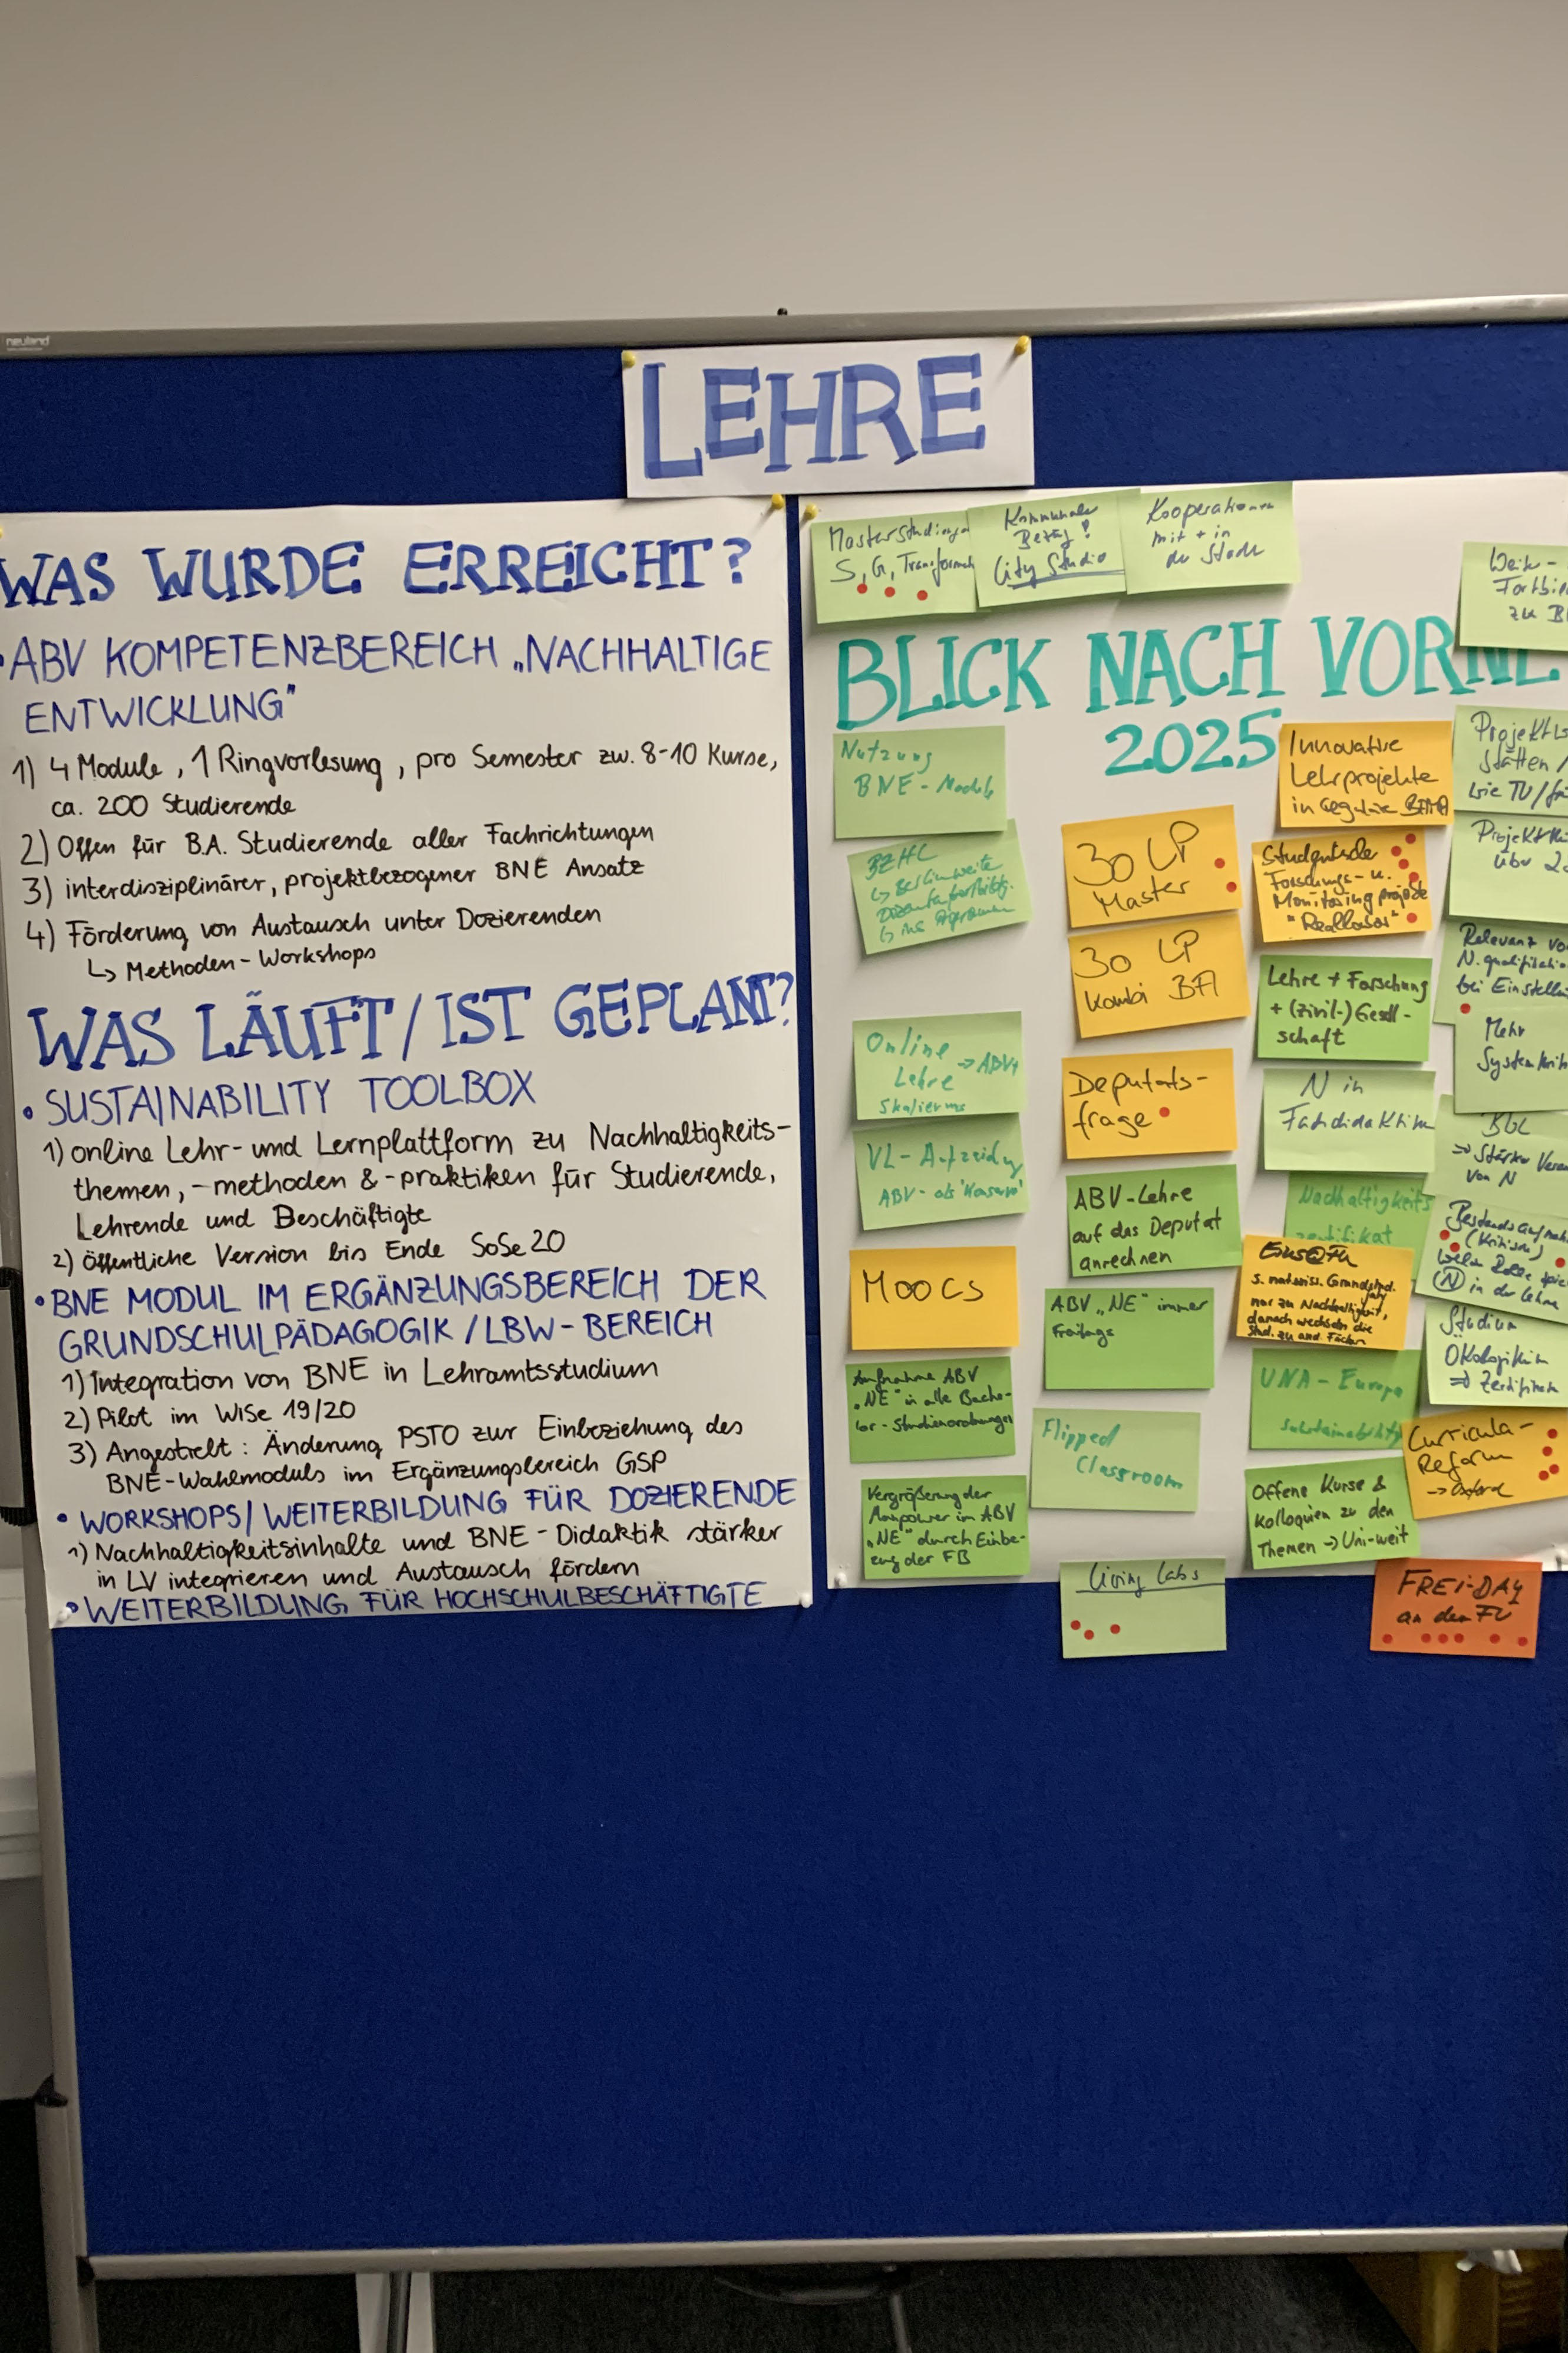 neuland
LEHRE
WAS WURDE ERREICHT?
• ABV KOMPETENZBEREICH „NACHHALTIGE
ENTWICKLUNG"
1) 4 Module, 1 Ringvorlesung, pro Semester zw. 8-10 Kurse,
ca. 200 Studierende
2) Offen für B.A. Studierende aller Fachrichtungen
3) interdisziplinärer, projektbezogener BNE Ansatz
4) Förderung von Austausch unter Dozierenden
↳ Methoden-Workshops
WAS LÄUFT/IST GEPLANT?
• SUSTAINABILITY TOOLBOX
1) online Lehr- und Lernplattform zu Nachhaltigkeits-
themen, -methoden & -praktiken für Studierende,
Lehrende und Beschäftigte
2) öffentliche Version bis Ende SoSe 20
• BNE MODUL IM ERGÄNZUNGSBEREICH DER
GRUNDSCHULPÄDAGOGIK / LBW-BEREICH
1) Integration von BNE in Lehramtsstudium
2) Pilot im WiSe 19/20
3) Angestrebt: Änderung PSTO zur Einbeziehung des
BNE-Wahlmoduls im Ergänzungsbereich GSP
• WORKSHOPS/WEITERBILDUNG FÜR DOZIERENDE
1) Nachhaltigkeitsinhalte und BNE-Didaktik stärker
in LV integrieren und Austausch fördern
• WEITERBILDUNG FÜR HOCHSCHULBESCHÄFTIGTE
Masterstudiengang
S, G, Transformat
Kommunaler
Bezug!
City Studio
Kooperationen
mit + in
der Stadt
Weiter-
Fortbi
zu B
BLICK NACH VORNE
2025
Nutzung
BNE-Module
BZHL
↳ Berlinweite
↳ ins Programm
Online → ABV
Lehre
VL-Aufzeichng
ABV- als "Konserve"
MOOCS
Aufnahme ABV
„NE" in alle Bache-
lor-Studienordnungen
Vergrößerung der
Manpower im ABV
„NE" durch Einbe-
zug der FB
30 LP
Master
30 LP
Kombi BA
Deputats-
frage
ABV-Lehre
auf das Deputat
anrechnen
ABV „NE" immer
Freitags
Flipped
Classroom
Living Labs
Innovative
Lehrprojekte
in
Studentische
Forschungs- u.
Monitoring projekte
"Reallabor"
Lehre + Forschung
+ (zivil-) Gesell-
schaft
N in
Fachdidaktiken
Nachhaltigkeits
zertifikat
s. natwiss. Grundstud.
nur zu Nachhaltigkeit,
danach wechseln die
Stud. zu and. Fächern
UNA-Europa
sustainability
Offene Kurse &
Kolloquien zu den
Themen → Uni-weit
Projekt
stätten /
wie TU/
Projekt
über 2
Relevanz vo
N. qualifikatio
bei Einstell
Mehr
Systemkriti
⇒ Stärker
von N
Bestandsaufnah
(kritisch)
welche Rolle spie
N in der Lehre
Studium
⇒ Zertifikat
Curricula-
Reform
FREI-DAY
an der FU